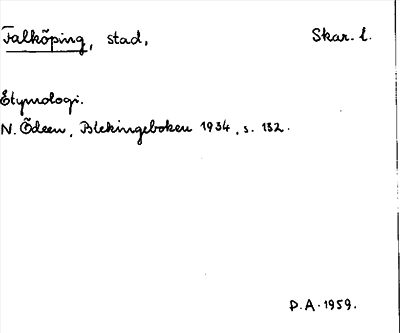 Falköping, stad, Skar. l.
Etymologi.
N. Ödeen, Blekingeboken 1934, s. 132.
P.A. 1959.